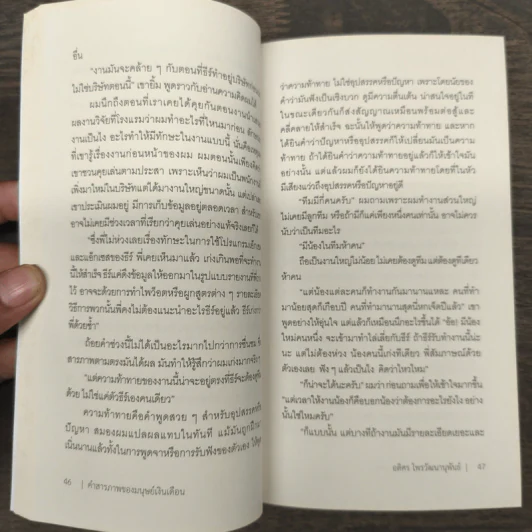 อื่น
"งานมันจะคล้าย ๆ กับตอนที่ธีร์ทำอยู่บริษัท
ไม่ใช่บริษัทตอนนี้" เขายิ้ม พูดราวกับอ่านความคิดผมได้
ผมนึกถึงตอนที่เราเคยได้คุยกันตอนงานนำเสนอ
ผลงานวิจัยที่โรงแรมว่าผมทำอะไรที่ไหนมาก่อน
งานเป็นไง อะไรทำให้มีทักษะในงานแบบนี้ นั่นคือ
ที่เขารู้เรื่องงานก่อนหน้าของผม ผมตอนนั้นเพียงคิดว่า
เขาชวนคุยเล่นตามประสา เพราะเห็นว่าผมเป็นพนักงาน
เพิ่งมาใหม่ในบริษัทแต่ได้มางานใหญ่ขนาดนั้น
เขาประเมินผมอยู่ มีการเก็บข้อมูลอยู่ตลอดเวลา
อาจไม่เคยมีช่วงเวลาที่เรียกว่าคุยเล่นอย่างแท้จริงเลยก็ได้
"ซึ่งพี่ไม่ห่วงเลยเรื่องทักษะในการใช้โปรแกรม
และเอ็กเซลของธีร์ พี่เคยเห็นมาแล้ว เก่งเกินพอที่จะทำ
ให้สำเร็จ ธีร์แค่ดึงข้อมูลให้ออกมาในรูปแบบรายงานที่
ไว้ อาจจะด้วยการทำไพวอตหรือผูกสูตรต่าง ๆ
วิธีการพวกนั้นพี่คงไม่ต้องแนะนำอะไรธีร์อยู่แล้ว
พี่ด้วยซ้ำ"
ถ้อยคำช่วงนี้ไม่ได้เป็นอะไรมากไปกว่าการชื่นชม
สารภาพตามตรงมันได้ผล มันทำให้รู้สึกว่าผมเก่งมากจริง
"แต่ความท้าทายของงานนี้น่าจะอยู่ตรงที่ธีร์จะต้อง
ไม่ใช่แค่ตัวธีร์เองคนเดียว"
ความท้าทายคือคำพูดสวย ๆ สำหรับอุปสรรคหรือ
ปัญหา สมองผมแปลผลแทบในทันที แม้มันถูก
เนิ่นนานแล้วทั้งในการพูดจาหรือการรับฟังของตัวเอง
46 | คำสารภาพของมนุษย์เงินเดือน
ว่าความท้าทาย ไม่ใช่อุปสรรคหรือปัญหา เพราะโดยนัยของ
คำว่ามันฟังเป็นเชิงบวก ดูมีความตื่นเต้น น่าสนใจอยู่ในที
ในขณะเดียวกันก็ส่งสัญญาณเหมือนพร้อมต่อสู้และ
คลี่คลายให้สำเร็จ ฉะนั้นให้พูดว่าความท้าทาย และหาก
ได้ยินคำว่าปัญหาหรืออุปสรรคก็ให้เปลี่ยนมันเป็นความ
ท้าทาย ถ้าได้ยินคำว่าความท้าทายอยู่แล้วก็ให้เข้าใจมัน
อย่างนั้น แต่แล้วผมก็ยังได้ยินความท้าทายโดยที่ในหัว
มีเสียงแว่วถึงอุปสรรคหรือปัญหาอยู่ดี
"ทีมมีกี่คนครับ" ผมถาม เพราะผมทำงานส่วนใหญ่
ไม่เคยมีลูกทีม หรือถ้ามีก็แค่เพียงหนึ่งคนเท่านั้น อาจไม่ควร
นับว่าเป็นทีมอะไร
"มีน้องในทีมห้าคน"
ถือเป็นงานใหญ่ไม่น้อย ไม่เคยต้องดูทีม แต่ต้องดูทีเดียว
ห้าคน
"แต่น้องแต่ละคนก็ทำงานกันมานานแหละ คนที่ทำ
มาน้อยสุดก็เกือบปี คนที่ทำมานานสุดนี่หกเจ็ดปีแล้ว" เขา
พูดอย่างให้อุ่นใจ แต่แล้วก็เหมือนนึกอะไรขึ้นได้ "อ้อ! มีน้อง
ใหม่คนหนึ่ง จะเข้ามาทำไล่เลี่ยกับธีร์ ถ้าธีร์รับทำงานนี้น่ะ
นะ แต่ไม่ต้องห่วง น้องคนนี้เก่งทีเดียว พี่สัมภาษณ์ด้วย
ตัวเองเลย ฟัง ๆ แล้วเป็นไง คิดว่าไหวไหม"
"ก็น่าจะได้นะครับ" ผมว่า ก่อนถามเพื่อให้เข้าใจมากขึ้น
"แต่เวลาให้งานน้องก็คือบอกน้องว่าต้องการอะไรยังไง อย่าง
นั้นใช่ไหมครับ"
"ก็แบบนั้น แต่บางทีถ้างานมันมีรายละเอียดเยอะและ
อติคร ไพรวัฒนานุพันธ์ | 47